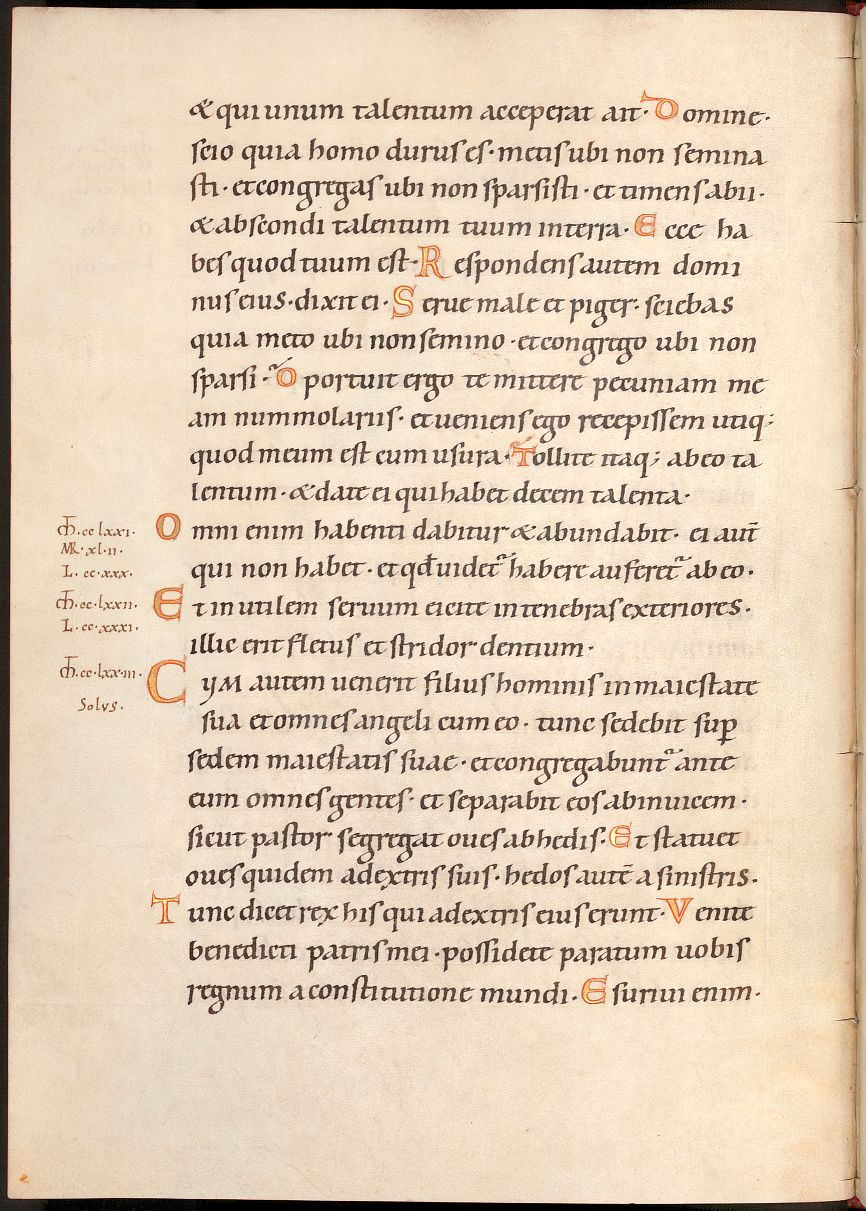 & qui unum talentum acceperat ait· Domine·
scio quia homo durus es· metis ubi non semina
sti· et congregas ubi non sparsisti· et timens abii·
& abscondi talentum tuum in terra· Ecce ha
bes quod tuum est· Respondens autem domi
nus eius· dixit ei· Serue male et piger· sciebas
quia meto ubi non semino· et congrego ubi non
sparsi· Oportuit ergo te mittere pecuniam me
am nummolariis· et ueniens ego recepissem utiq;
quod meum est cum usura· Tollite itaq; ab eo ta
lentum· & date ei qui habet decem talenta·
m̄·cc lxxi·
MR·xl·ii·
L·cc·xxx·
Omni enim habenti dabitur & abundabit· ei aut̄
qui non habet· et qđ uidet᷑ habere auferet᷑ ab eo·
m̄·cc·lxxii·
L·cc·xxxi·
Et inutilem seruum eicite in tenebras exteriores·
illic erit fletus et stridor dentium·
m̄·cc·lxx·iii·
Solus·
Cum autem uenerit filius hominis in maiestate
sua et omnes angeli cum eo· tunc sedebit sup̱
sedem maiestatis suae· et congregabunt᷑ ante
eum omnes gentes· et separabit eos ab inuicem·
sicut pastor segregat oues ab hedis· Et statuet
oues quidem a dextris suis· hedos autē a sinistris·
Tunc dicet rex his qui a dextris eius erunt· Venite
benedicti patris mei· possidete paratum uobis
regnum a constitutione mundi· Esuriui enim·